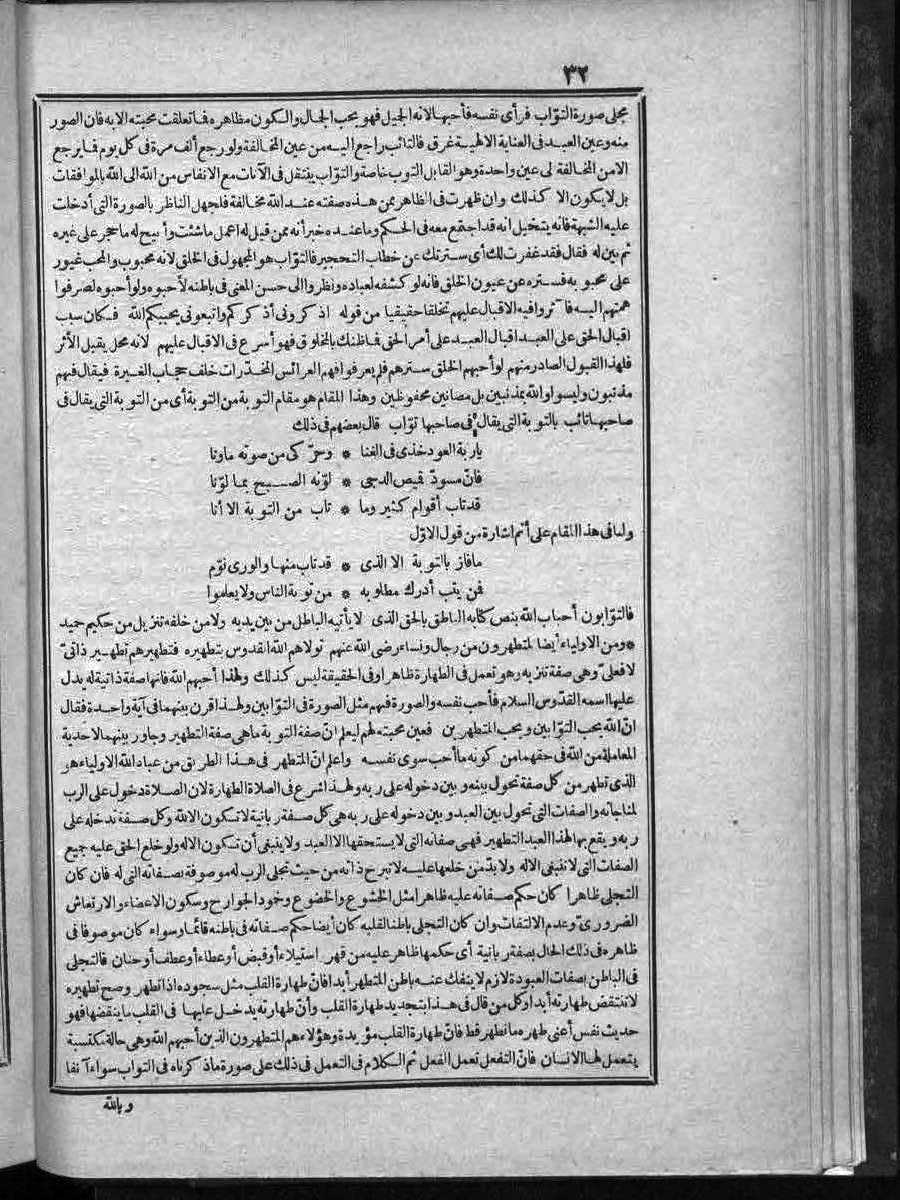 ٣٢
مجلى صورة التوّاب فرأى نفسه فأحبها لانه الجيل فهو يحب الجمال والكون مظاهره فما تعلقت محبته الا به فان الصور
منه وعين العبد فى العناية الالهية غرق فالتائب راجع اليه من عين المخالفة ولو رجع ألف مرة فى كل يوم فما يرجع
الامن المخالفة لى عين واحدة وهو القابل التوب خاصة والتوّاب ينتقل فى الآنات مع الانفاس من الله الى الله بالموافقات
بل لا يكون الا كذلك وان ظهرت فى الظاهر ممن هذه صفته عند الله مخالفة فلجهل الناظر بالصورة التى أدخلت
عليه الشبهة فانه يتخيل انه قد اجتمع معه فى الحكم وما عنده خبر أنه ممن قيل له اعمل ماشئت وأبيح له ما حجر على غيره
ثم بين له فقال فقد غفرت لك أى سترتك عن خطاب التحجير فالتوّاب هو المجهول فى الخلق لانه محبوب والمحب غيور
على محبوبه فستره عن عيون الخلق فانه لو كشفه لعباده ونظروا الى حسن المعنى فى باطنه لأحبوه ولو أحبوه لصرفوا
همتهم اليه فآثروا فيه الاقبال عليهم تخلقا حقيقيا من قوله اذكرونى أذكركم واتبعونى يحببكم الله فكان سبب
اقبال الحق على العبد اقبال العبد على أمر الحق فما ظنك بالمخلوق فهو أسرع فى الاقبال عليهم لانه محل يقبل الأثر
فلهذا القبول الصادر منهم لو أحبهم الخلق سترهم فلم يعرفوا فهم العرائس المخدّرات خلف حجاب الغيرة فيقال فيهم
مذنبون وليسوا والله بمذنبين بل مصانين محفوظين وهذا المقام هو مقام التوبة من التوبة أى من التوبة التى يقال فى
صاحبها تائب بالتوبة التى يقال فى صاحبها توّاب قال بعضهم فى ذلك
ياربة العود خذى فى الغنا * وحرّكى من صوته ماونا
فانّ مسودّ قيص الدجى * لوّنه الصبح بما لوّنا
قد تاب أقوام كثير وما * تاب من التوبة الا أنا
ولما فى هذا المقام على أتم اشارة من قول الاوّل
مافاز بالتوبة الا الذى * قد تاب منها والورى نوّم
فمن يتب أدرك مطلوبه * من توبة الناس ولا يعلموا
فالتوّابون أحباب الله بنص كتابه الناطق بالحق الذى لا يأتيه الباطل من بين يديه ولا من خلفه تنزيل من حكيم حميد
*ومن الاولياء أيضا المتطهرون من رجال ونساء رضى الله عنهم تولاهم الله القدوس بتطهيره فتطهيرهم تطهير ذاتىّ
لا فعلىّ وهى صفة تنزيه وهو تعمل فى الطهارة ظاهرا وفى الحقيقة ليس كذلك ولهذا أحبهم الله فانها صفة ذاتية له يدل
عليها اسمه القدّوس السلام فأحب نفسه والصورة فيهم مثل الصورة فى التوّابين ولهذا قرن بينهما فى آية واحدة فقال
انّ الله يحب التوّابين ويحب المتطهرين فعين محبته لهم ليعلم انّ صفة التوبة ماهى صفة التطهير وجاور بينهما لأحدية
المعاملة من الله فى حقهما من كونه ما أحب سوى نفسه واعلم انّ المتطهر فى هذا الطريق من عباد الله الاولياء هو
الذى تطهر من كل صفة تحول بينه وبين دخوله على ربه ولهذا شرع فى الصلاة الطهارة لان الصلاة دخول على الرب
لمناجاته والصفات التى تحول بين العبد وبين دخوله على ربه هى كل صفة ربانية لا تكون الا لله وكل صفة تدخله على
ربه ويقع بها لهذا العبد التطهير فهى صفاته التى لا يستحقها الا العبد ولا ينبغى أن تكون الا له ولو خلع الحق عليه جميع
الصفات التى لا تنبغى الا له ولا بدّ من خلعها عليه لا تبرح ذاته من حيث تجلى الرب له موصوفة بصفاته التى له فان كان
التجلى ظاهرا كان حكم صفاته عليه ظاهرا مثل الخشوع والخضوع وخمود الجوارح وسكون الاعضاء والارتعاش
الضرورىّ وعدم الالتفات وان كان التجلى باطنا لقلبه كان أيضا حكم صفاته فى باطنه قائما وسواء كان موصوفا فى
ظاهره فى ذلك الحال بصفة ربانية أى حكمها ظاهر عليه من قهر استيلاء أو قبض أو عطاء أو عطف أو حنان فالتجلى
فى الباطن بصفات العبودة لازم لا ينفك عنه باطن المتطهر أبدا فانّ طهارة القلب مثل سجوده اذا تطهر وصح تطهيره
لا تنتقض طهارته أبدا وكل من قال فى هذا بتجديد طهارة القلب وأنّ طهارته يدخل عليها فى القلب ما ينقضها فهو
حديث نفس أعنى طهره ما تطهر قط فانّ طهارة القلب مؤبدة وهؤلاء هم المتطهرون الذين أحبهم الله وهى حالة مكتسبة
يتعمل لها الانسان فانّ التفعل تعمل الفعل ثم الكلام فى التعمل فى ذلك على صورة ماذكرناه فى التواب سواء آنفا
وبالله